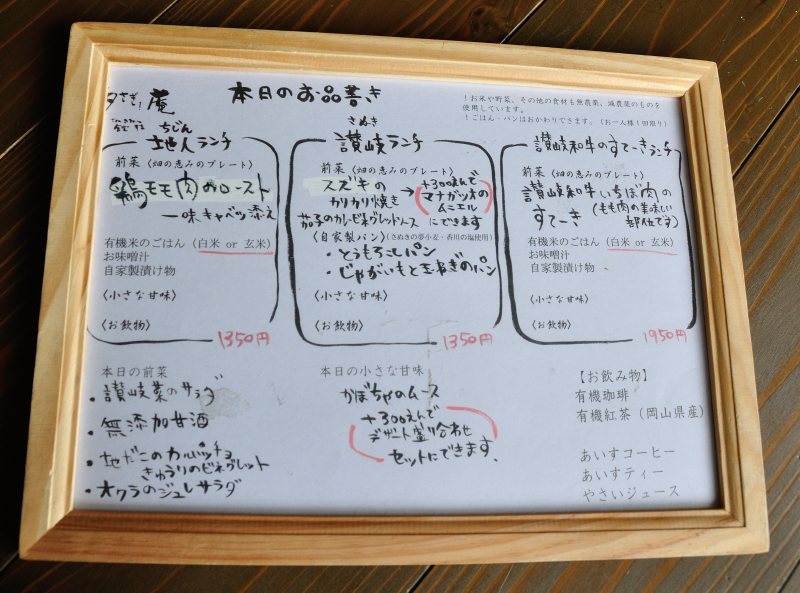 庵
本日のお品書き
!お米や野菜、その他の食材も無農薬、減農薬のものを
使用しています。
!ごはん・パンはおかわりできます。(お一人様1回限り)
ちじん
地人ランチ
前菜〈畑の恵みのプレート〉
鶏モモ肉のロースト
一味キャベツ添え
有機米のごはん(白米 or 玄米)
お味噌汁
自家製漬け物
〈小さな甘味〉
〈お飲物〉
1350円
さぬき
讃岐ランチ
前菜〈畑の恵みのプレート〉
スズキの
カリカリ焼き
茄子のカレービネグレットソース
→+300えんで
マナガツオの
ムニエル
にできます
〈自家製パン〉(さぬきの夢小麦・香川の塩使用)
・とうもろこしパン
・じゃがいもと玉ねぎのパン
〈小さな甘味〉
〈お飲物〉
1350円
讃岐和牛のすてーきランチ
前菜〈畑の恵みのプレート〉
讃岐和牛いちぼ肉の
すてーき
(もも肉の美味しい
部位です)
有機米のごはん(白米 or 玄米)
お味噌汁
自家製漬け物
〈小さな甘味〉
〈お飲物〉
1950円
本日の前菜
・讃岐菜のサラダ
・無添加甘酒
・地だこのカルパッチョ
きゅうりのビネグレット
・オクラのジュレサラダ
本日の小さな甘味
かぼちゃのムース
+300えんで
デザート盛り合わせ
セットにできます。
【お飲み物】
有機珈琲
有機紅茶(岡山県産)
あいすコーヒー
あいすティー
やさいジュース